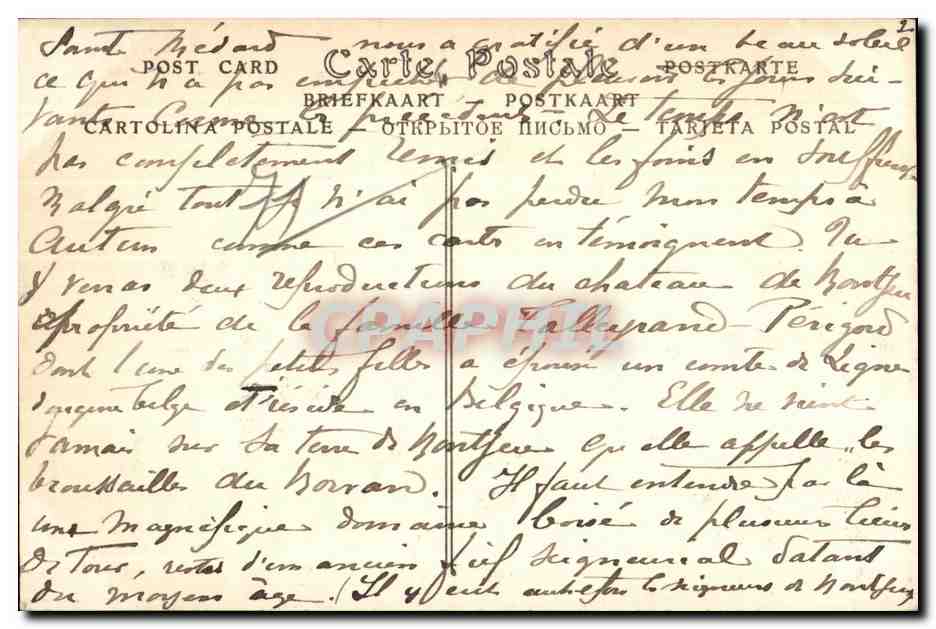 2
Saint Médard nous a gratifié d'un beau soleil
POST CARD Carte Postale POSTKARTE
ce qui n'a pas empêché de pleuvoir les jours sui-
BRIEFKAART POSTKAART
vants comme les précédents. Le temps n'est
CARTOLINA POSTALE — ОТКРЫТОЕ ПИСЬМО — TARJETA POSTAL
pas complètement remis et les foins en souffrent
Malgré tout je n'ai pas perdu mon temps à
Autun comme ces cartes en témoignent. Tu
y verras deux reproductions du chateau de Montjeu
propriété de la famille Talleyrand-Périgord
CPAPHIL
dont l'une des petites filles a épousé un comte de Ligne
d'origine belge et réside en Belgique. Elle ne vient
jamais sur sa terre de Montjeu qu'elle appelle "les
broussailles du Morvan. Il faut entendre par là
une magnifique domaine boisé de plusieurs lieues
de tour, restes d'un ancien fief seigneurial datant
du moyen âge. (Il y eut autrefois les seigneurs de Montjeu